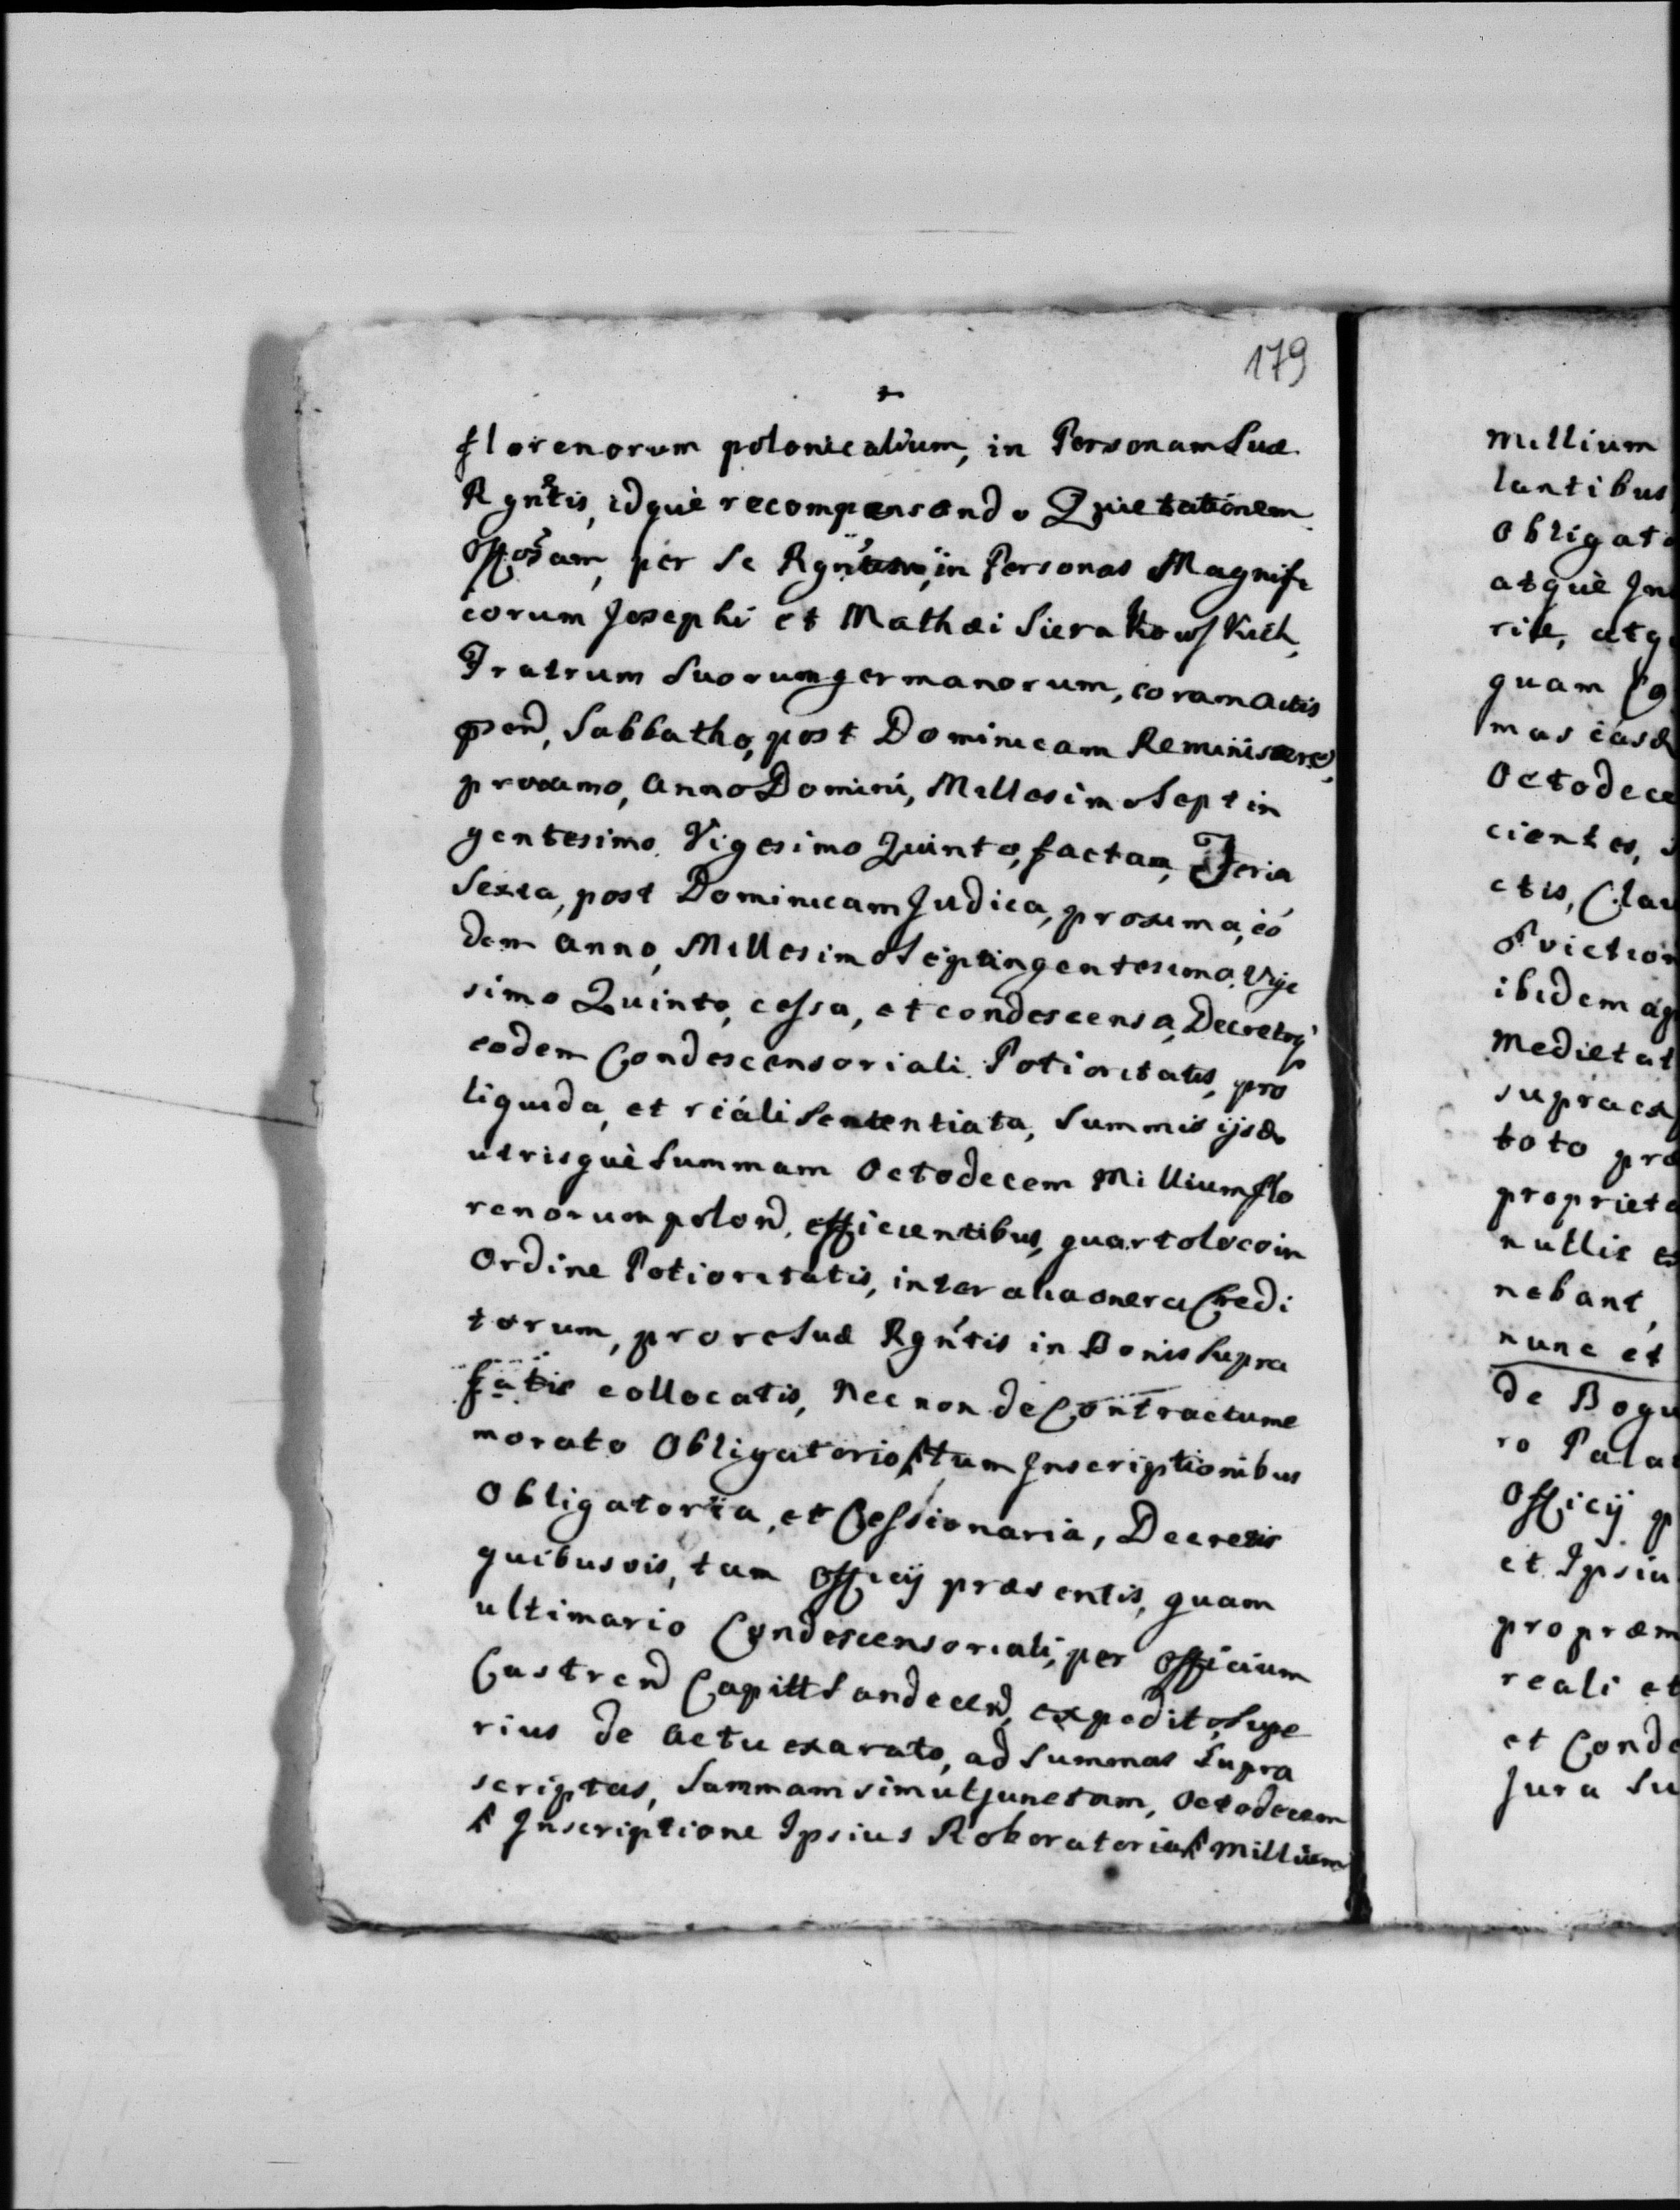 179
florenorum polonicalium, in Personam Suæ
Rgntis, idquè recompensando Quietationem
Offosam, per Se Rgntem, in Personas Magnifi
corum Josephi et Mathæi Sierakowskich,
Fratrum Suorum germanorum, coram Actis
psen, Sabbatho, post Dominicam Reminiscere,
proximo, Anno Domini, Millesimo Septin
gentesimo Vigesimo Quinto, factam, Feria
Sexta, post Dominicam Judica, proxima, eó
dem Anno, Millesimo Septingentesimo Vige
simo Quinto, cessa, et condescensa, Decretoq
eodem Condescensoriali Potioritatis, pro
liquida, et reáli Sententiata, Summis ijsd
utrisquè Summam Octodecem Millium flo
renorum polon, efficientibus, quarto loco in
Ordine Potioritatis, inter alia onera Credi
torum, pro re Suæ Rgntis in Bonis Supra
fatis collocatis, Nec non de Contractu me
morato Obligatorio, tum Inscriptionibus
Obligatoria, et Cessionaria, Decretis
quibusvis, tam Officij præsentis, quam
ultimario Condescensoriali, per Officium
Castren Capitt Sandecen, expedito, Supe
rius de Actu exarato, ad Summas Supra
scriptas, Summam simul junctam, Octodecem
Inscriptione Ipsius Roboratoria Millium
Millium
lantibus
Obligato
atquè In
rite, atq
quam Co
mas eásd
Octodece
cientes,
ctis, Clau
Eviction
ibidem ag
Medietat
supraex
toto præ
proprieta
nullis
nebant,
nunc et
de Bogu
ro Pala
Officij p
et Ipsiu
propræm
reali et
et Conde
Jura Su